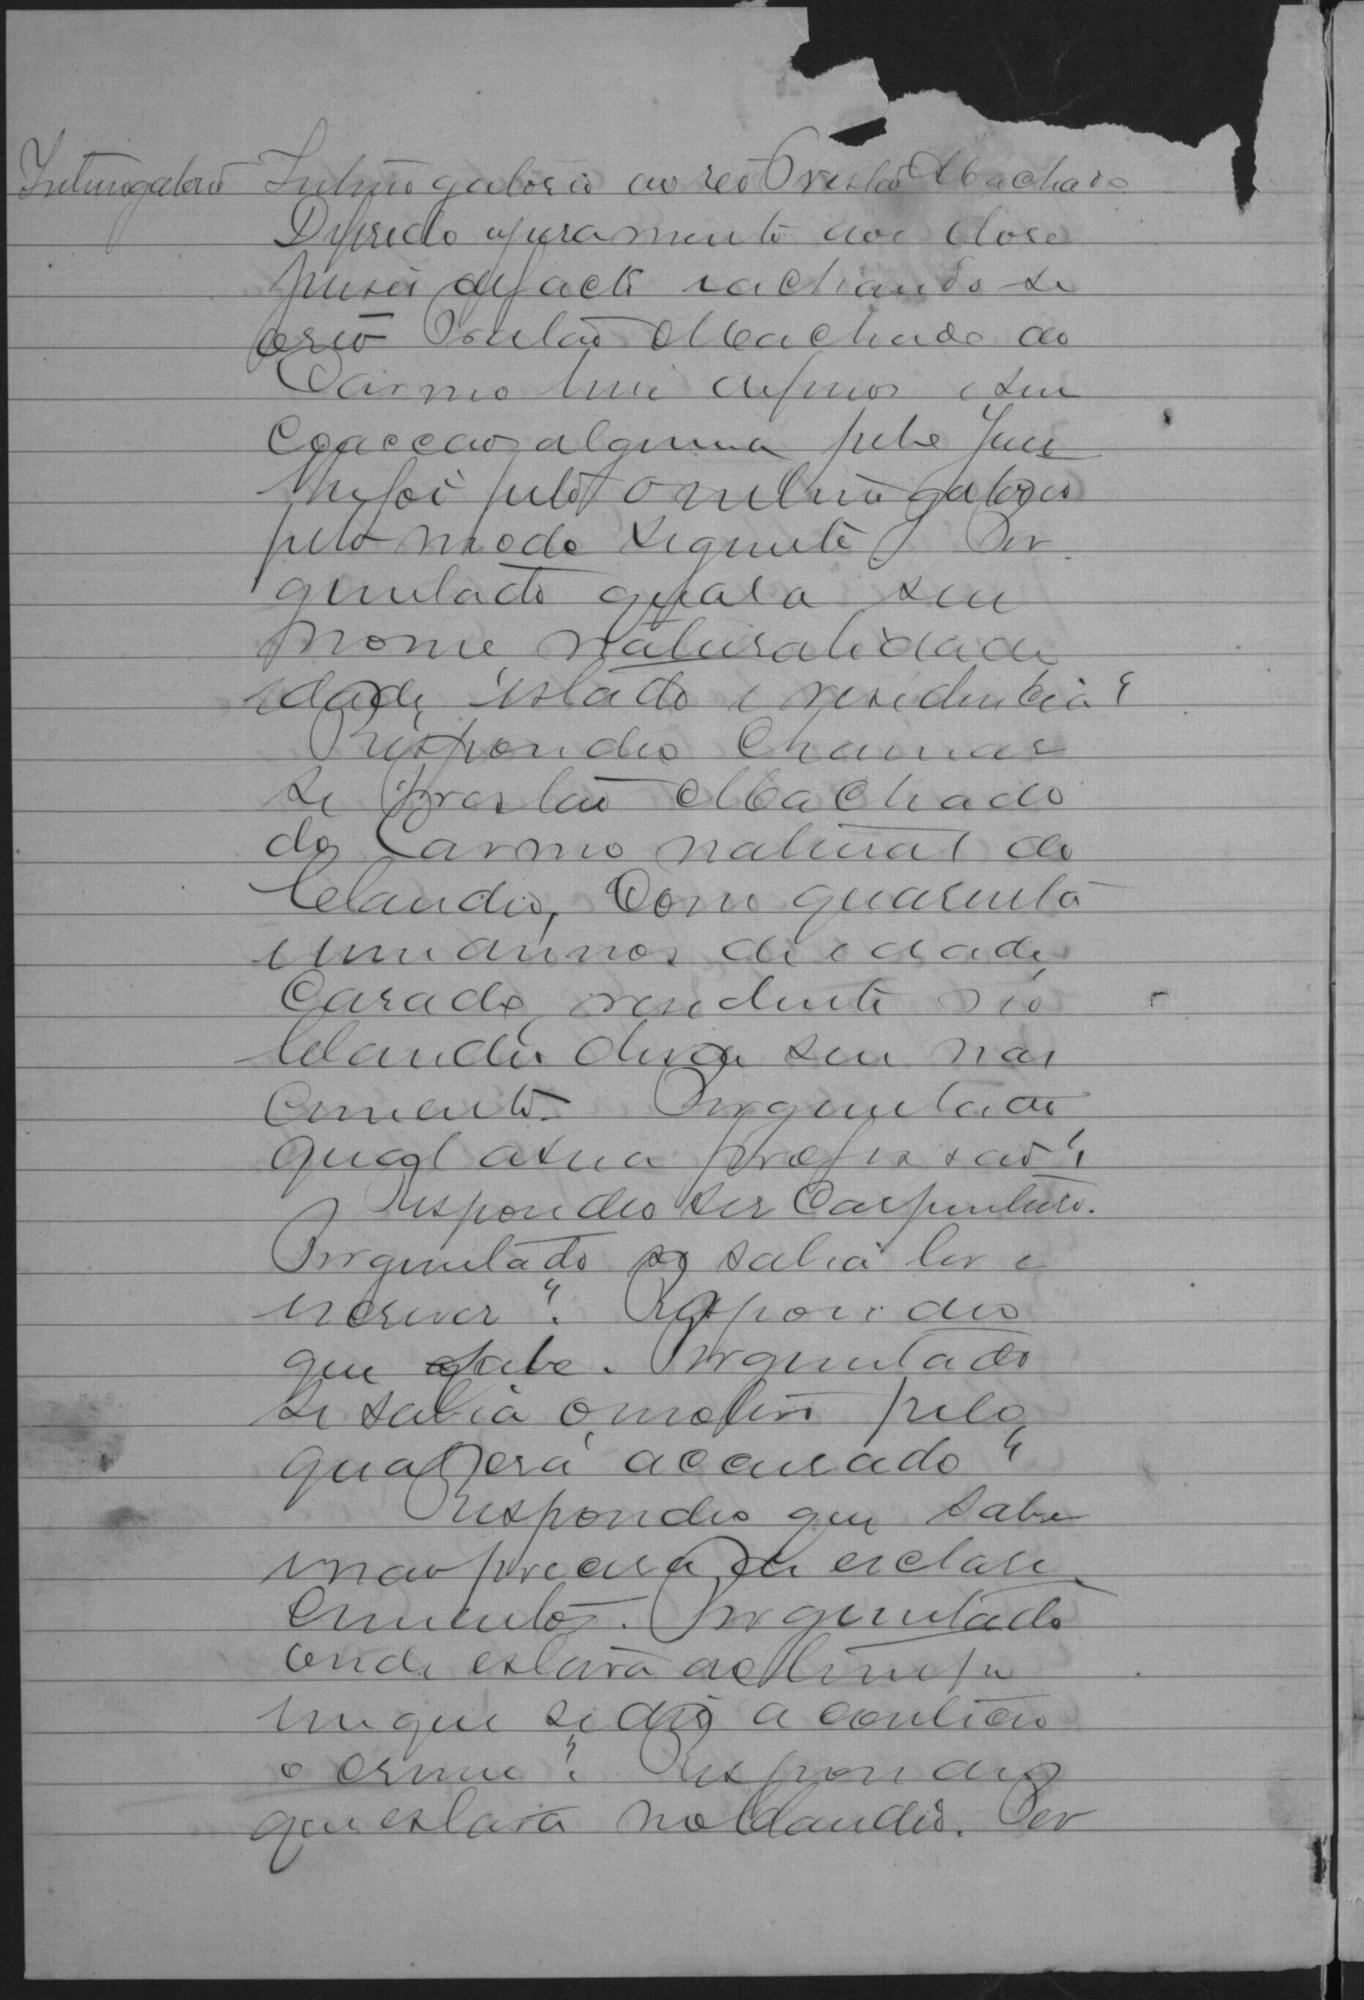 Interrogatorio Interrogatorio ao reo Prestão Machado
Diferido o juramento aos dose
juises de facto e achando se
o reo Prestão Machado do
Carmo livre de ferros e sem
coaccao alguma pelo Juis
lhe foi feito o interrogatorio
pelo modo seguinte. Per
guntado qual o seu
nome, naturalidade
idade, estado e residencia?
Respondeo chamar
se Prestão Machado
do Carmo natural do
Claudio, com quarenta
e um annos de edade,
Casado, residente no
Claudio desde seu nas
cimento. Perguntado
qual a sua profissao?
Respondeo ser Carpinteiro.
Perguntado se sabia ler e
escrever? Respondeo
que sabe. Perguntado
se sabia o motivo pelo
qual era accusado?
Respondeo que sabe
e nao precisa de esclare
cimentos. Perguntado
onde estava ao tempo
em que se diz aconteceo
o crime? Respondeo
que estava no Claudio. Per